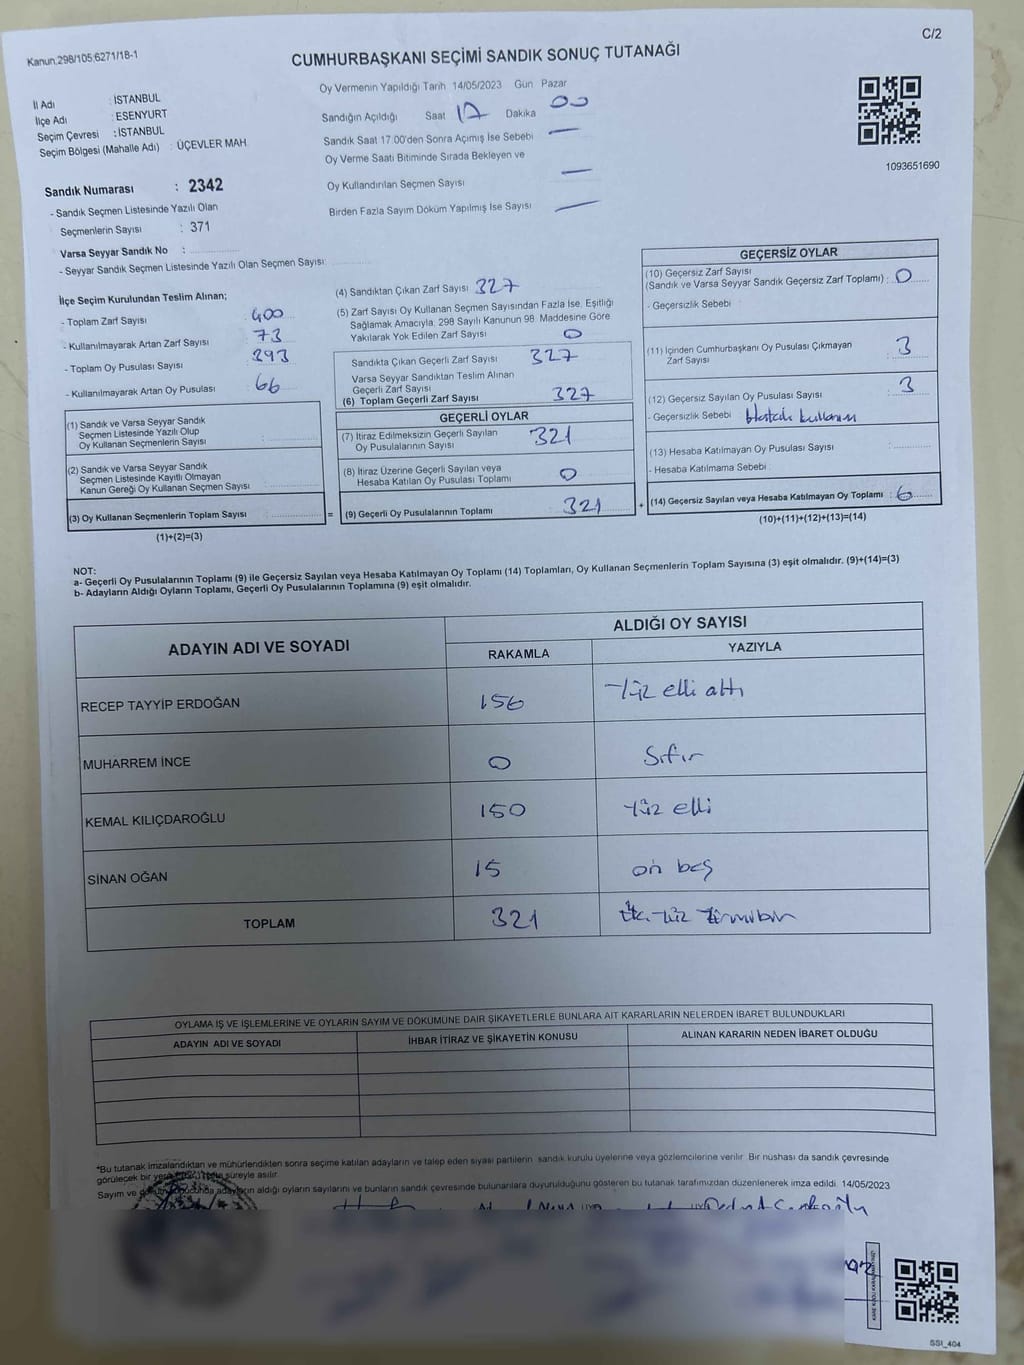 Kanun.298/105;6271/18-1
C/2
CUMHURBAŞKANI SEÇİMİ SANDIK SONUÇ TUTANAĞI
İl Adı : İSTANBUL
İlçe Adı : ESENYURT
Seçim Çevresi : İSTANBUL
Seçim Bölgesi (Mahalle Adı) : ÜÇEVLER MAH.
Sandık Numarası : 2342
- Sandık Seçmen Listesinde Yazılı Olan
Seçmenlerin Sayısı : 371
Varsa Seyyar Sandık No :
- Seyyar Sandık Seçmen Listesinde Yazılı Olan Seçmen Sayısı:
Oy Vermenin Yapıldığı Tarih 14/05/2023 Gün Pazar
Sandığın Açıldığı Saat 17 Dakika 00
Sandık Saat 17.00'den Sonra Açımış İse Sebebi —
Oy Verme Saati Bitiminde Sırada Bekleyen ve
Oy Kullandırılan Seçmen Sayısı —
Birden Fazla Sayım Döküm Yapılmış İse Sayısı —
1093651690
İlçe Seçim Kurulundan Teslim Alınan;
- Toplam Zarf Sayısı : 400
- Kullanılmayarak Artan Zarf Sayısı : 73
- Toplam Oy Pusulası Sayısı : 393
- Kullanılmayarak Artan Oy Pusulası : 66
(1) Sandık ve Varsa Seyyar Sandık
Seçmen Listesinde Yazılı Olup
Oy Kullanan Seçmenlerin Sayısı :
(2) Sandık ve Varsa Seyyar Sandık
Seçmen Listesinde Kayıtlı Olmayan
Kanun Gereği Oy Kullanan Seçmen Sayısı :
(3) Oy Kullanan Seçmenlerin Toplam Sayısı :
(1)+(2)=(3)
(4) Sandıktan Çıkan Zarf Sayısı 327
(5) Zarf Sayısı Oy Kullanan Seçmen Sayısından Fazla İse, Eşitliği
Sağlamak Amacıyla, 298 Sayılı Kanunun 98. Maddesine Göre
Yakılarak Yok Edilen Zarf Sayısı 0
Sandıkta Çıkan Geçerli Zarf Sayısı 327
Varsa Seyyar Sandıktan Teslim Alınan
Geçerli Zarf Sayısı
(6) Toplam Geçerli Zarf Sayısı 327
GEÇERLİ OYLAR
(7) İtiraz Edilmeksizin Geçerli Sayılan
Oy Pusulalarının Sayısı 321
(8) İtiraz Üzerine Geçerli Sayılan veya
Hesaba Katılan Oy Pusulası Toplamı 0
= (9) Geçerli Oy Pusulalarının Toplamı 321 +
GEÇERSİZ OYLAR
(10) Geçersiz Zarf Sayısı
(Sandık ve Varsa Seyyar Sandık Geçersiz Zarf Toplamı) : 0
- Geçersizlik Sebebi
(11) İçinden Cumhurbaşkanı Oy Pusulası Çıkmayan
Zarf Sayısı : 3
(12) Geçersiz Sayılan Oy Pusulası Sayısı : 3
- Geçersizlik Sebebi Hatalı kullanım
(13) Hesaba Katılmayan Oy Pusulası Sayısı :
- Hesaba Katılmama Sebebi
(14) Geçersiz Sayılan veya Hesaba Katılmayan Oy Toplamı : 6
(10)+(11)+(12)+(13)=(14)
NOT:
a- Geçerli Oy Pusulalarının Toplamı (9) ile Geçersiz Sayılan veya Hesaba Katılmayan Oy Toplamı (14) Toplamları, Oy Kullanan Seçmenlerin Toplam Sayısına (3) eşit olmalıdır. (9)+(14)=(3)
b- Adayların Aldığı Oyların Toplamı, Geçerli Oy Pusulalarının Toplamına (9) eşit olmalıdır.
ADAYIN ADI VE SOYADI
ALDIĞI OY SAYISI
RAKAMLA YAZIYLA
RECEP TAYYİP ERDOĞAN 156 Yüz elli altı
MUHARREM İNCE 0 Sıfır
KEMAL KILIÇDAROĞLU 150 Yüz elli
SİNAN OĞAN 15 on beş
TOPLAM 321
OYLAMA İŞ VE İŞLEMLERİNE VE OYLARIN SAYIM VE DÖKÜMÜNE DAİR ŞİKAYETLERLE BUNLARA AİT KARARLARIN NELERDEN İBARET BULUNDUKLARI
ADAYIN ADI VE SOYADI İHBAR İTİRAZ VE ŞİKAYETİN KONUSU ALINAN KARARIN NEDEN İBARET OLDUĞU
*Bu tutanak imzalandıktan ve mühürlendikten sonra seçime katılan adayların ve talep eden siyasi partilerin sandık kurulu üyelerine veya gözlemcilerine verilir. Bir nüshası da sandık çevresinde
görülecek bir yere süreyle asılır.
Sayım ve adayların aldığı oyların sayılarını ve bunların sandık çevresinde bulunanlara duyurulduğunu gösteren bu tutanak tarafımızdan düzenlenerek imza edildi. 14/05/2023
SSI_404